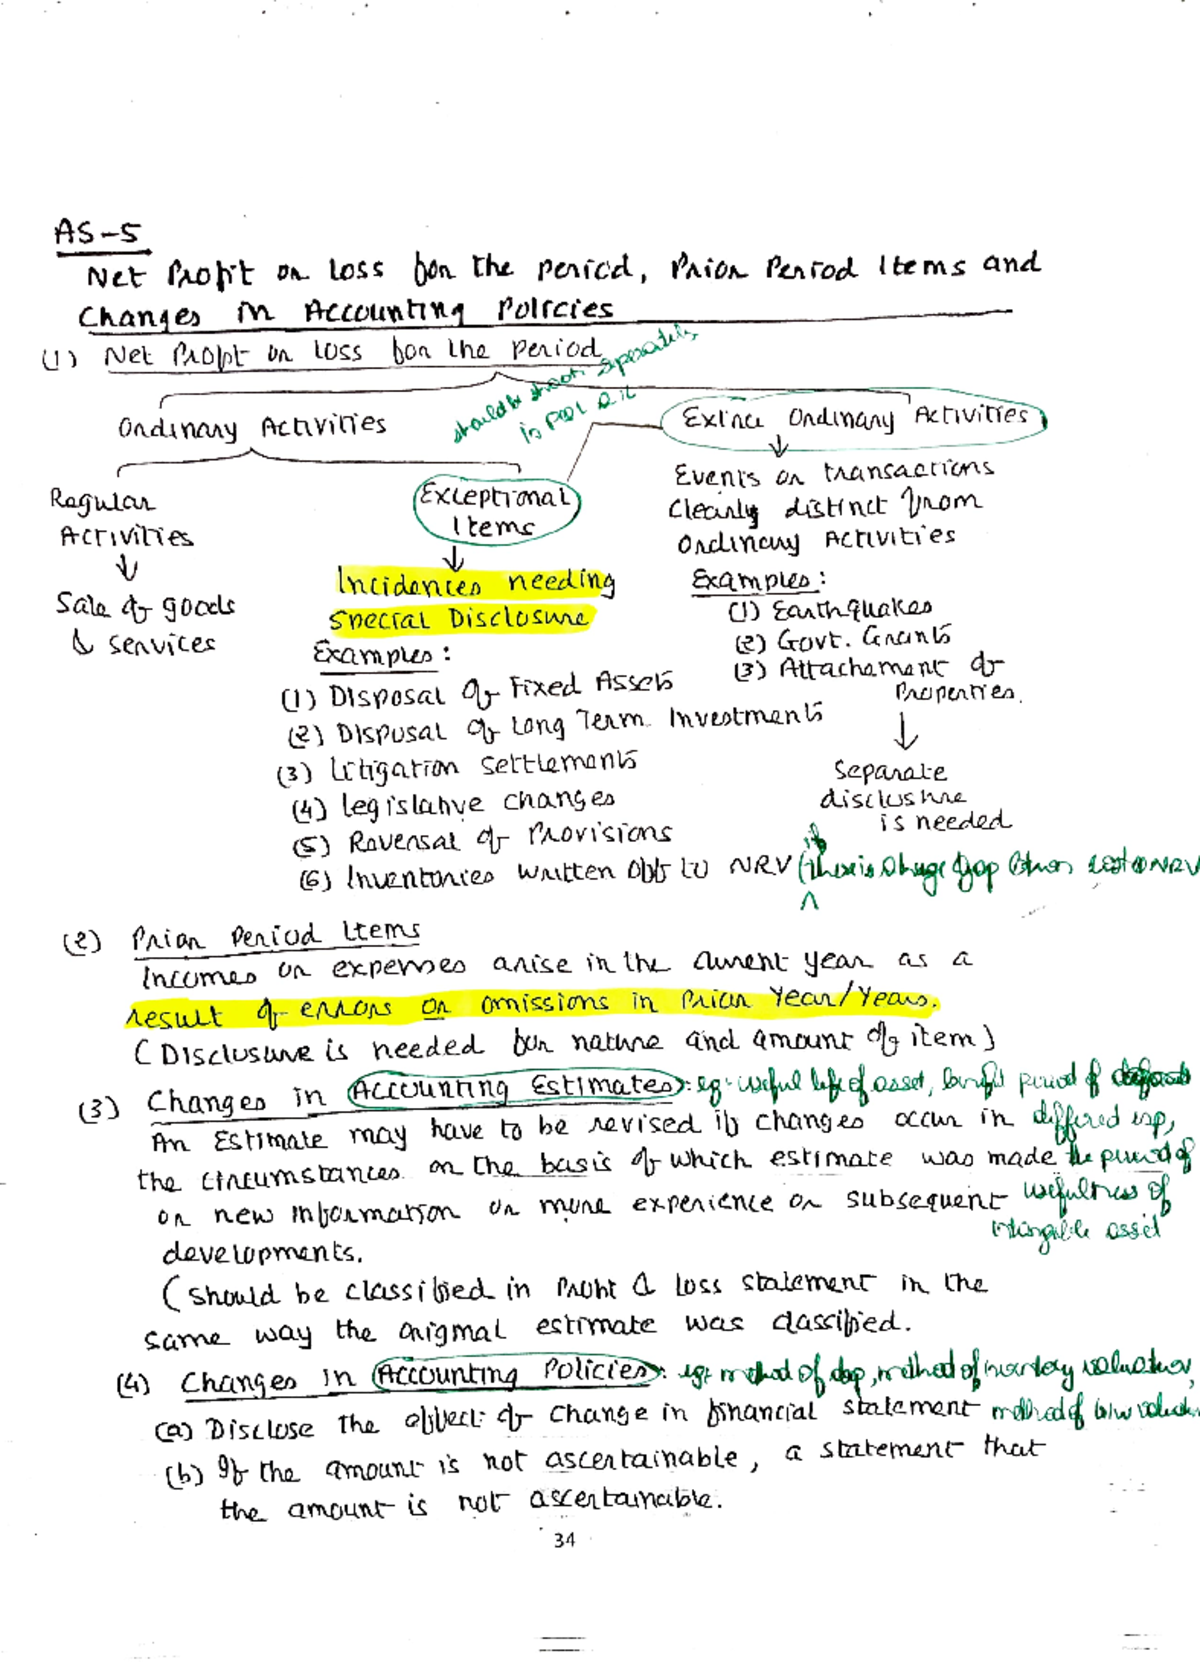 AS-5
Net Profit or Loss for the period, Prior Period Items and
Changes in Accounting Policies
(1) Net Profit or Loss for the period
should be shown separately
in P&L a/c
Ordinary Activities
Extra Ordinary Activities
Regular Activities
↓
Sale of goods
& services
Exceptional
Items
↓
Incidences needing
Special Disclosure
Examples:
(1) Disposal of Fixed Assets
(2) Disposal of Long Term Investments
(3) Litigation Settlements
(4) Legislative changes
(5) Reversal of Provisions
(6) Inventories written off to NRV (if there is a huge gap btwn cost & NRV
Events or transactions
Clearly distinct from
Ordinary Activities
Examples:
(1) Earthquakes
(2) Govt. Grants
(3) Attachament of
Properties.
↓
Separate
disclusure
is needed
(2) Prior Period Items
Incomes or expenses arise in the current year as a
result of errors or omissions in Prior Year/Years.
(Disclosure is needed for nature and amount of item)
(3) Changes in Accounting Estimates: eg:- useful life of asset, benefit period of
An Estimate may have to be revised if changes occur in differed exp,
the circumstances on the basis of which estimate was made the period of
or new information or more experience or subsequent usefulness of
intangible asset
developments.
(should be classified in Profit & loss statement in the
same way the original estimate was classified.
(4) Changes in Accounting Policies: eg: method of dep, method of inventory valuation,
(a) Disclose the effect of change in financial statement method of
(b) If the amount is not ascertainable, a statement that
the amount is not ascertainable.
34